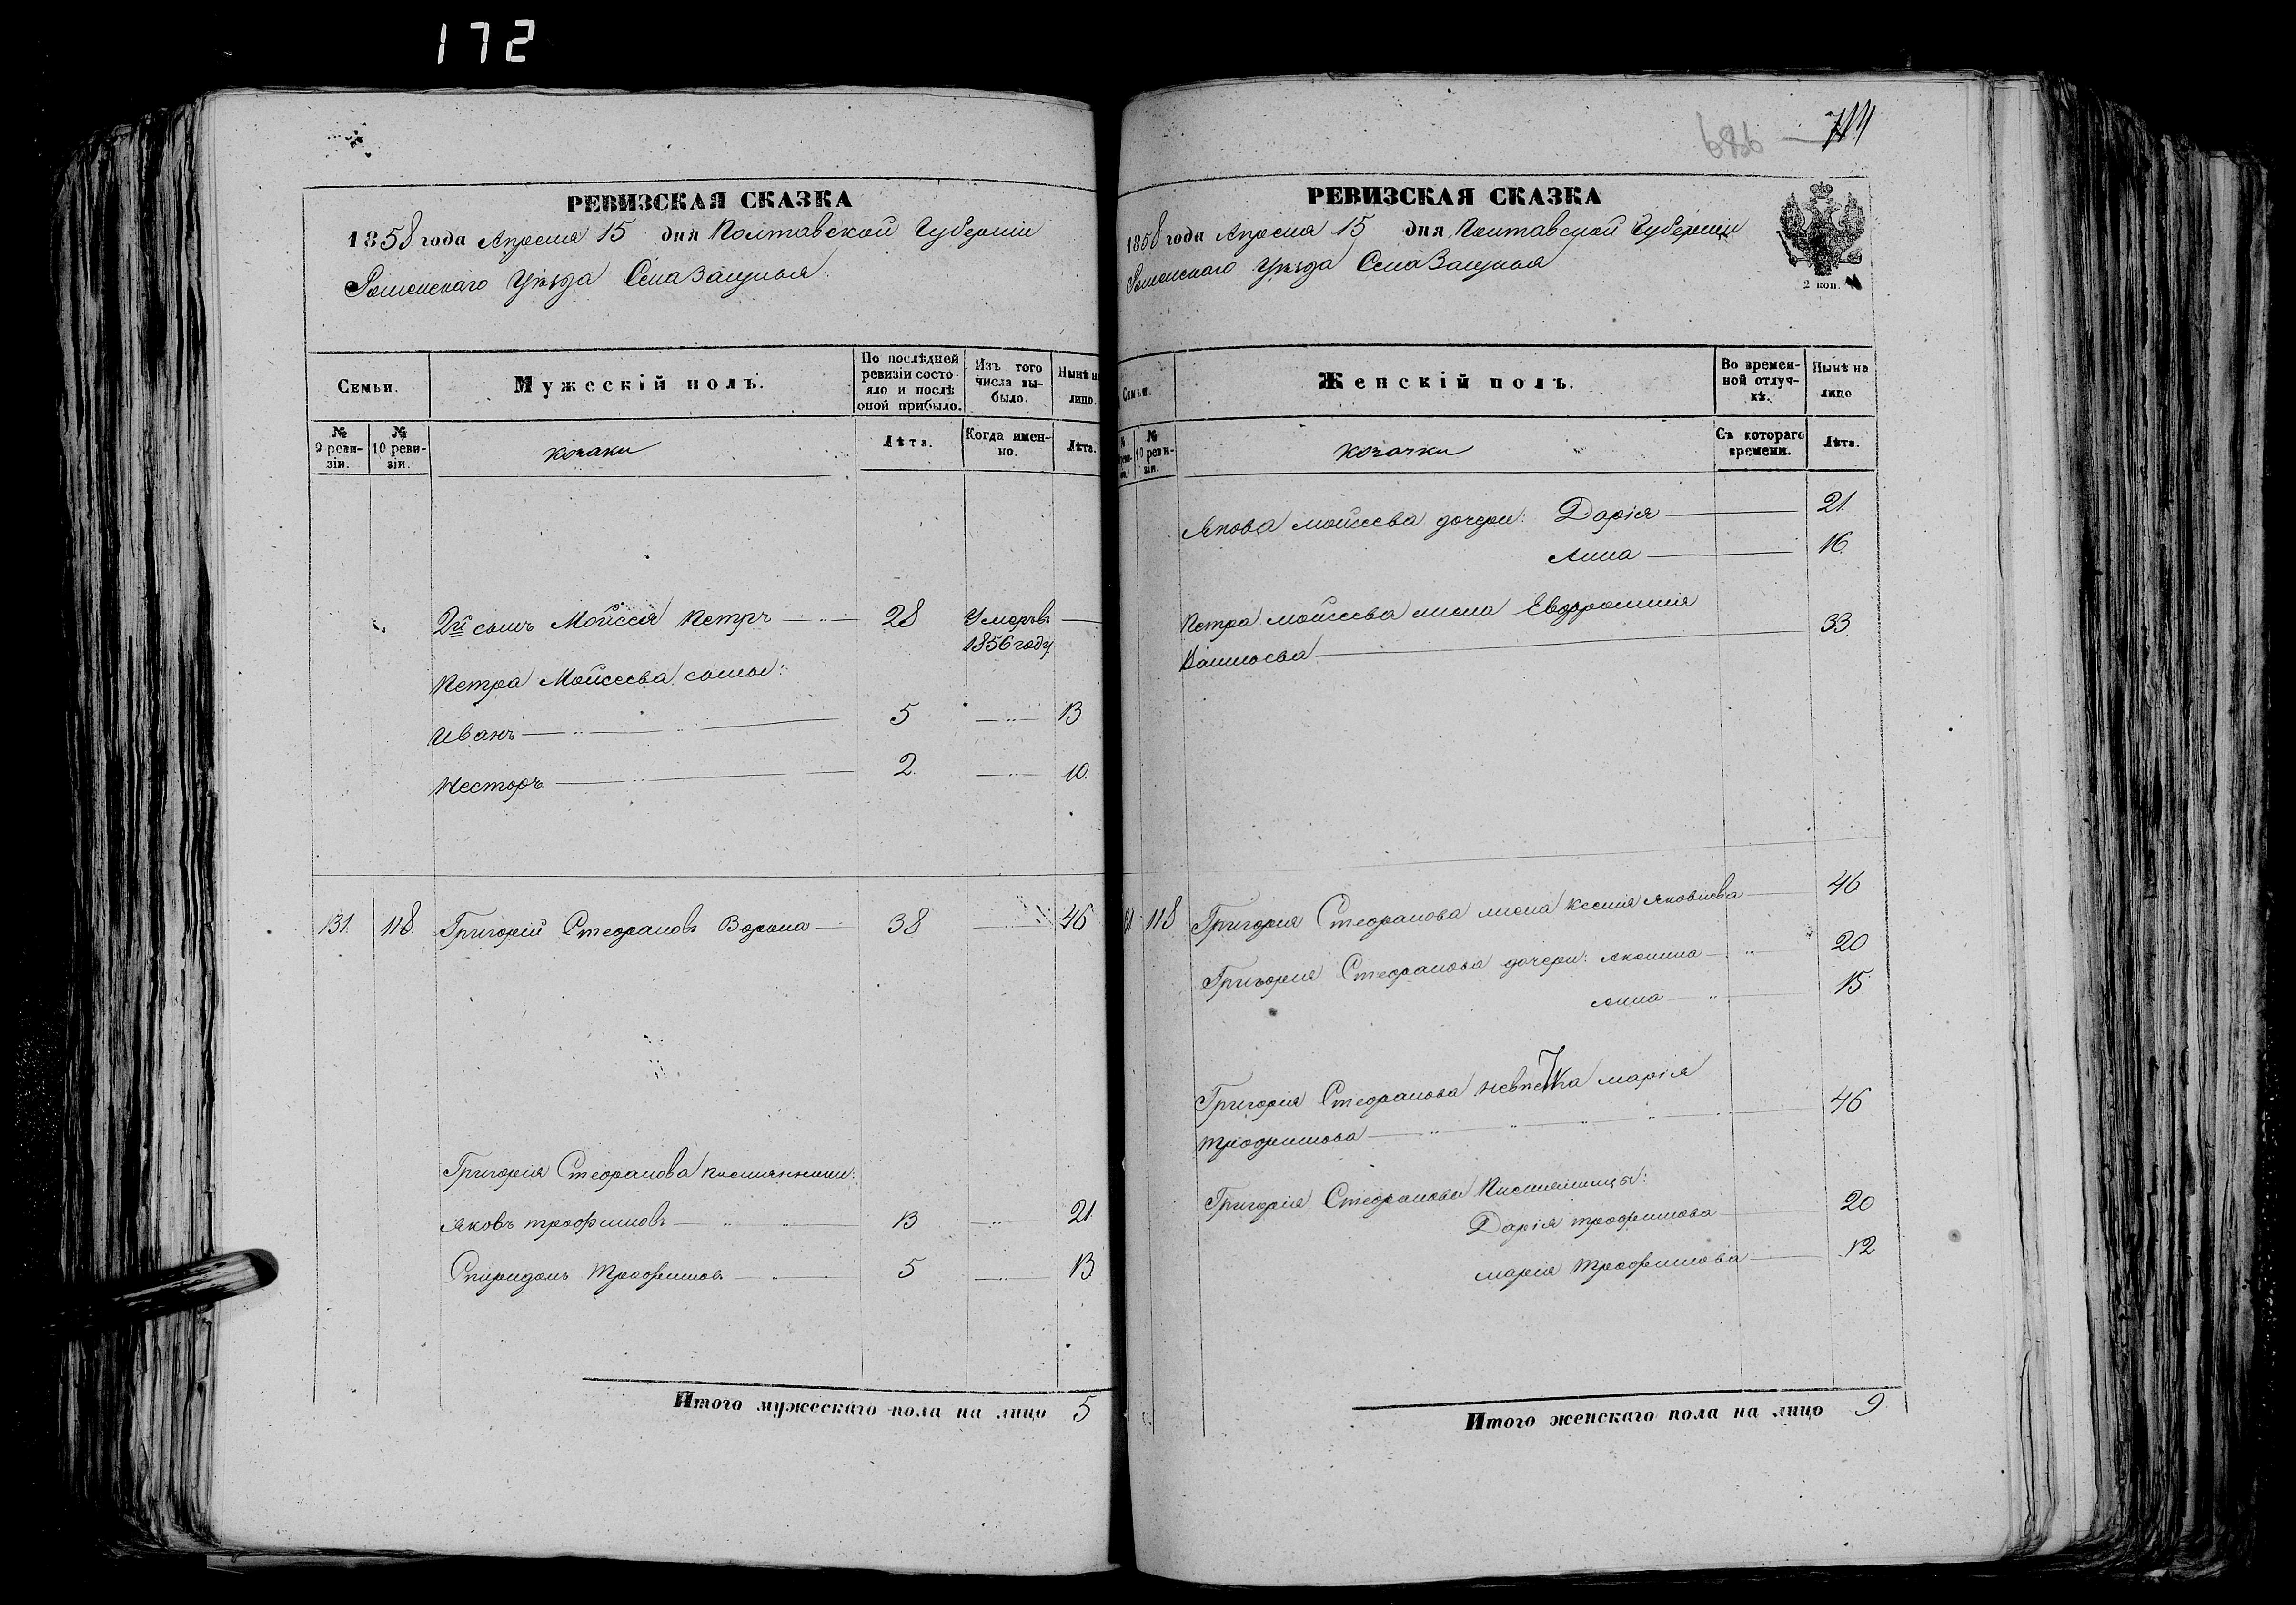 172
РЕВИЗСКАЯ СКАЗКА
1858 года Апреля 15 дня Полтавской Губернии
Роменскаго Уѣзда Села
Семьи.
Мужескій полъ.
По послѣдней ревизіи состояло и послѣ оной прибыло.
Изъ того числа выбыло.
Нынѣ на лицо.
№ 9 ревизіи.
№ 10 ревизіи.
козаки
Лѣта.
Когда именно.
Лѣта.
2й сынъ Мойсея Петръ 28 Умеръ въ
1856 году
Петра Мойсеева сыны:
Иванъ 5 13
Несторъ 2. 10.
131. 118. Григорій Стефановъ Ворона 38 46
Григорія Стефанова племянники:
Яковъ Трофимовъ 13 21
Спиридонъ Трофимовъ 5 13
Итого мужескаго пола на лицо 5
686 711
РЕВИЗСКАЯ СКАЗКА
1858 года Апреля 15 дня Полтавской Губерніи
Роменскаго Уѣзда Села
2 коп.
Семьи.
Женскій полъ.
Во временной отлучкѣ.
Нынѣ на лицо
№ 10 ревизіи.
козачки
Съ котораго времени.
Лѣта.
Якова Мойсеева дочери: Дарія 21.
Анна 16.
Петра Мойсеева жена Евфросинія
33.
118 Григорія Стефанова жена Ксенія Яковлева 46
Григорія Стефанова дочери: Акилина 20
Анна 15
Григорія Стефанова невѣстка Марія
Трофимова 46
Григорія Стефанова Племянницы:
Дарія Трофимова 20
Марія Трофимова 12
Итого женскаго пола на лицо 9